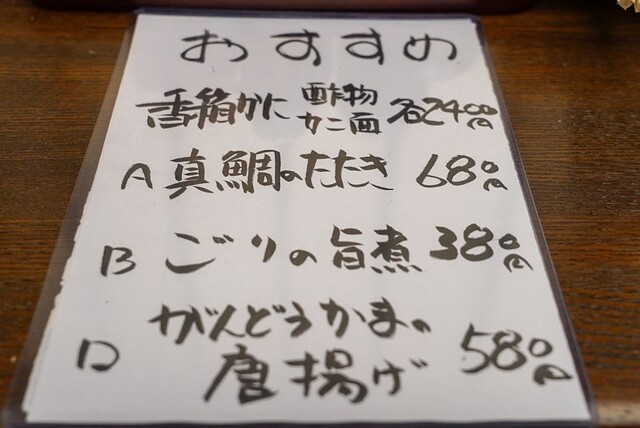 おすすめ
香箱かに 酢物 カニ面 各2400円
A 真鯛のたたき 680円
B ごりの旨煮 380円
D がんどうかまの
唐揚げ 580円